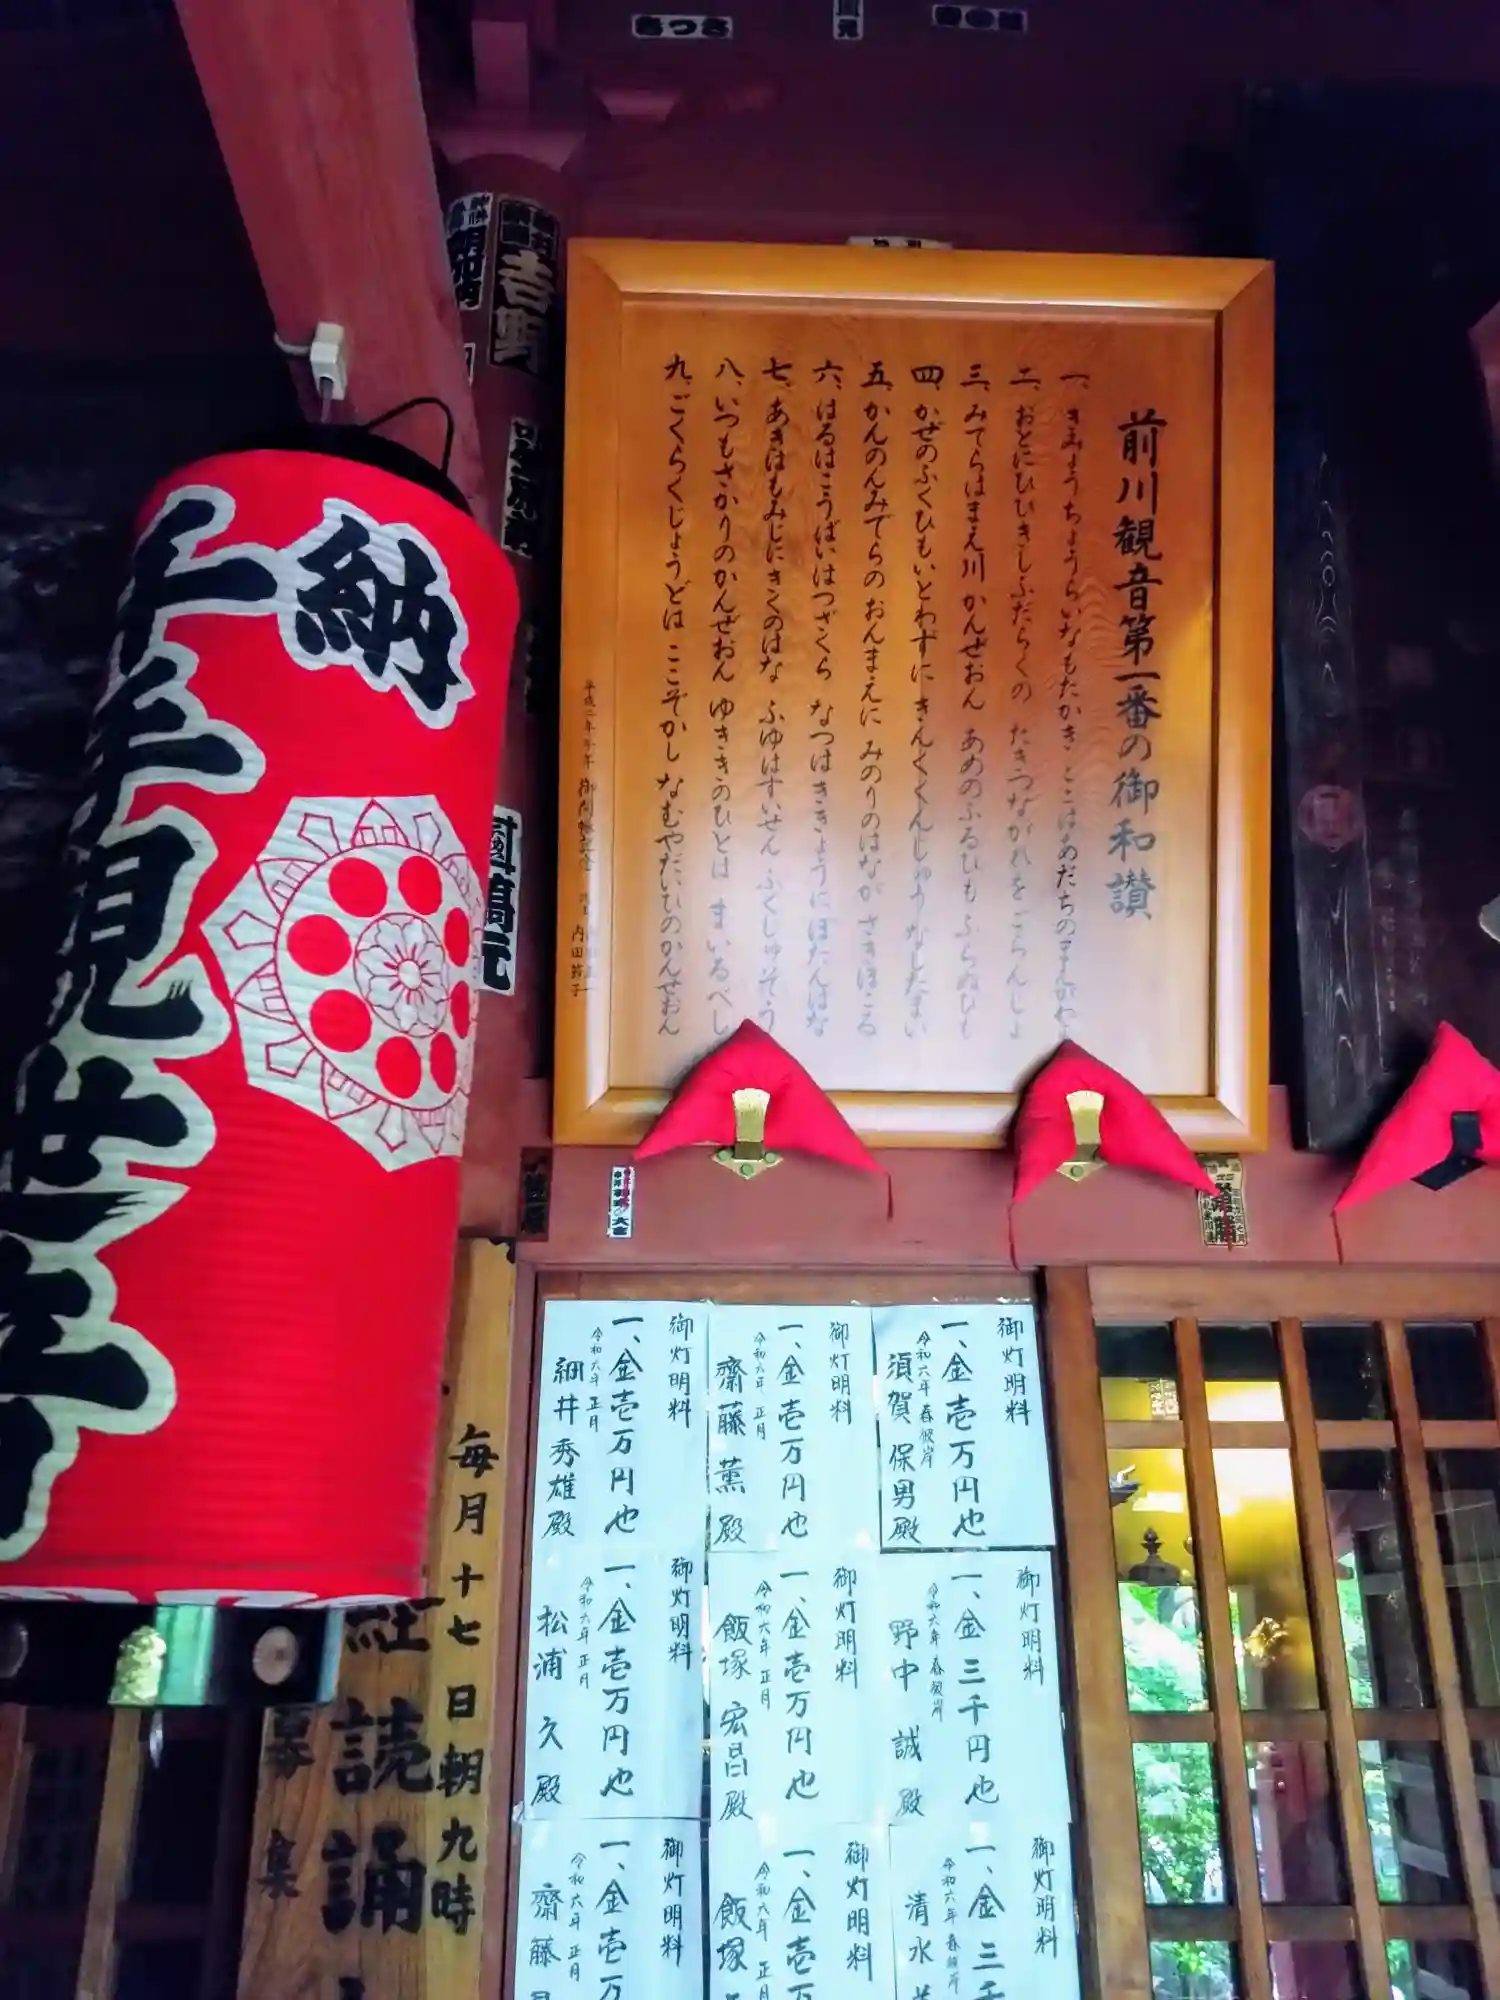 納
千手観世音
吉野
高元
前川観音第一番の御和讃
一、きみょうちょうらいなもたかき ここはあだちのまえがわよ
二、おとにひびきしふだらくの たきつながれをごらんじょ
三、みてらはまえ川かんぜおん あめのふるひもふらぬひも
四、かぜのふくひもいとわずに きんくくんじゅうなしたまい
五、かんのんみてらのおんまえに みのりのはながさきほこる
六、はるはこうばいはつざくら なつはききょうにぼたんばな
七、あきはもみじにきくのはな ふゆはすいせんふくじゅそう
八、いつもさかりのかんぜおん ゆききのひとはまいるべし
九、ごくらくじょうどはここぞかし なむやだいひのかんぜおん
内田節子
御灯明料
一、金壱万円也
令和六年春彼岸
須賀保男殿
御灯明料
一、金壱万円也
令和六年正月
齋藤薫殿
御灯明料
一、金壱万円也
令和六年正月
細井秀雄殿
御灯明料
一、金三千円也
令和六年春彼岸
野中誠殿
御灯明料
一、金壱万円也
令和六年正月
飯塚宏昌殿
御灯明料
一、金壱万円也
令和六年正月
松浦久殿
御灯明料
一、金三千
令和六年春彼岸
清水
御灯明料
一、金壱万
令和六年正月
飯塚
御灯明料
一、金壱万
令和六年正月
齋藤
毎月十七日朝九時
経読誦
募集